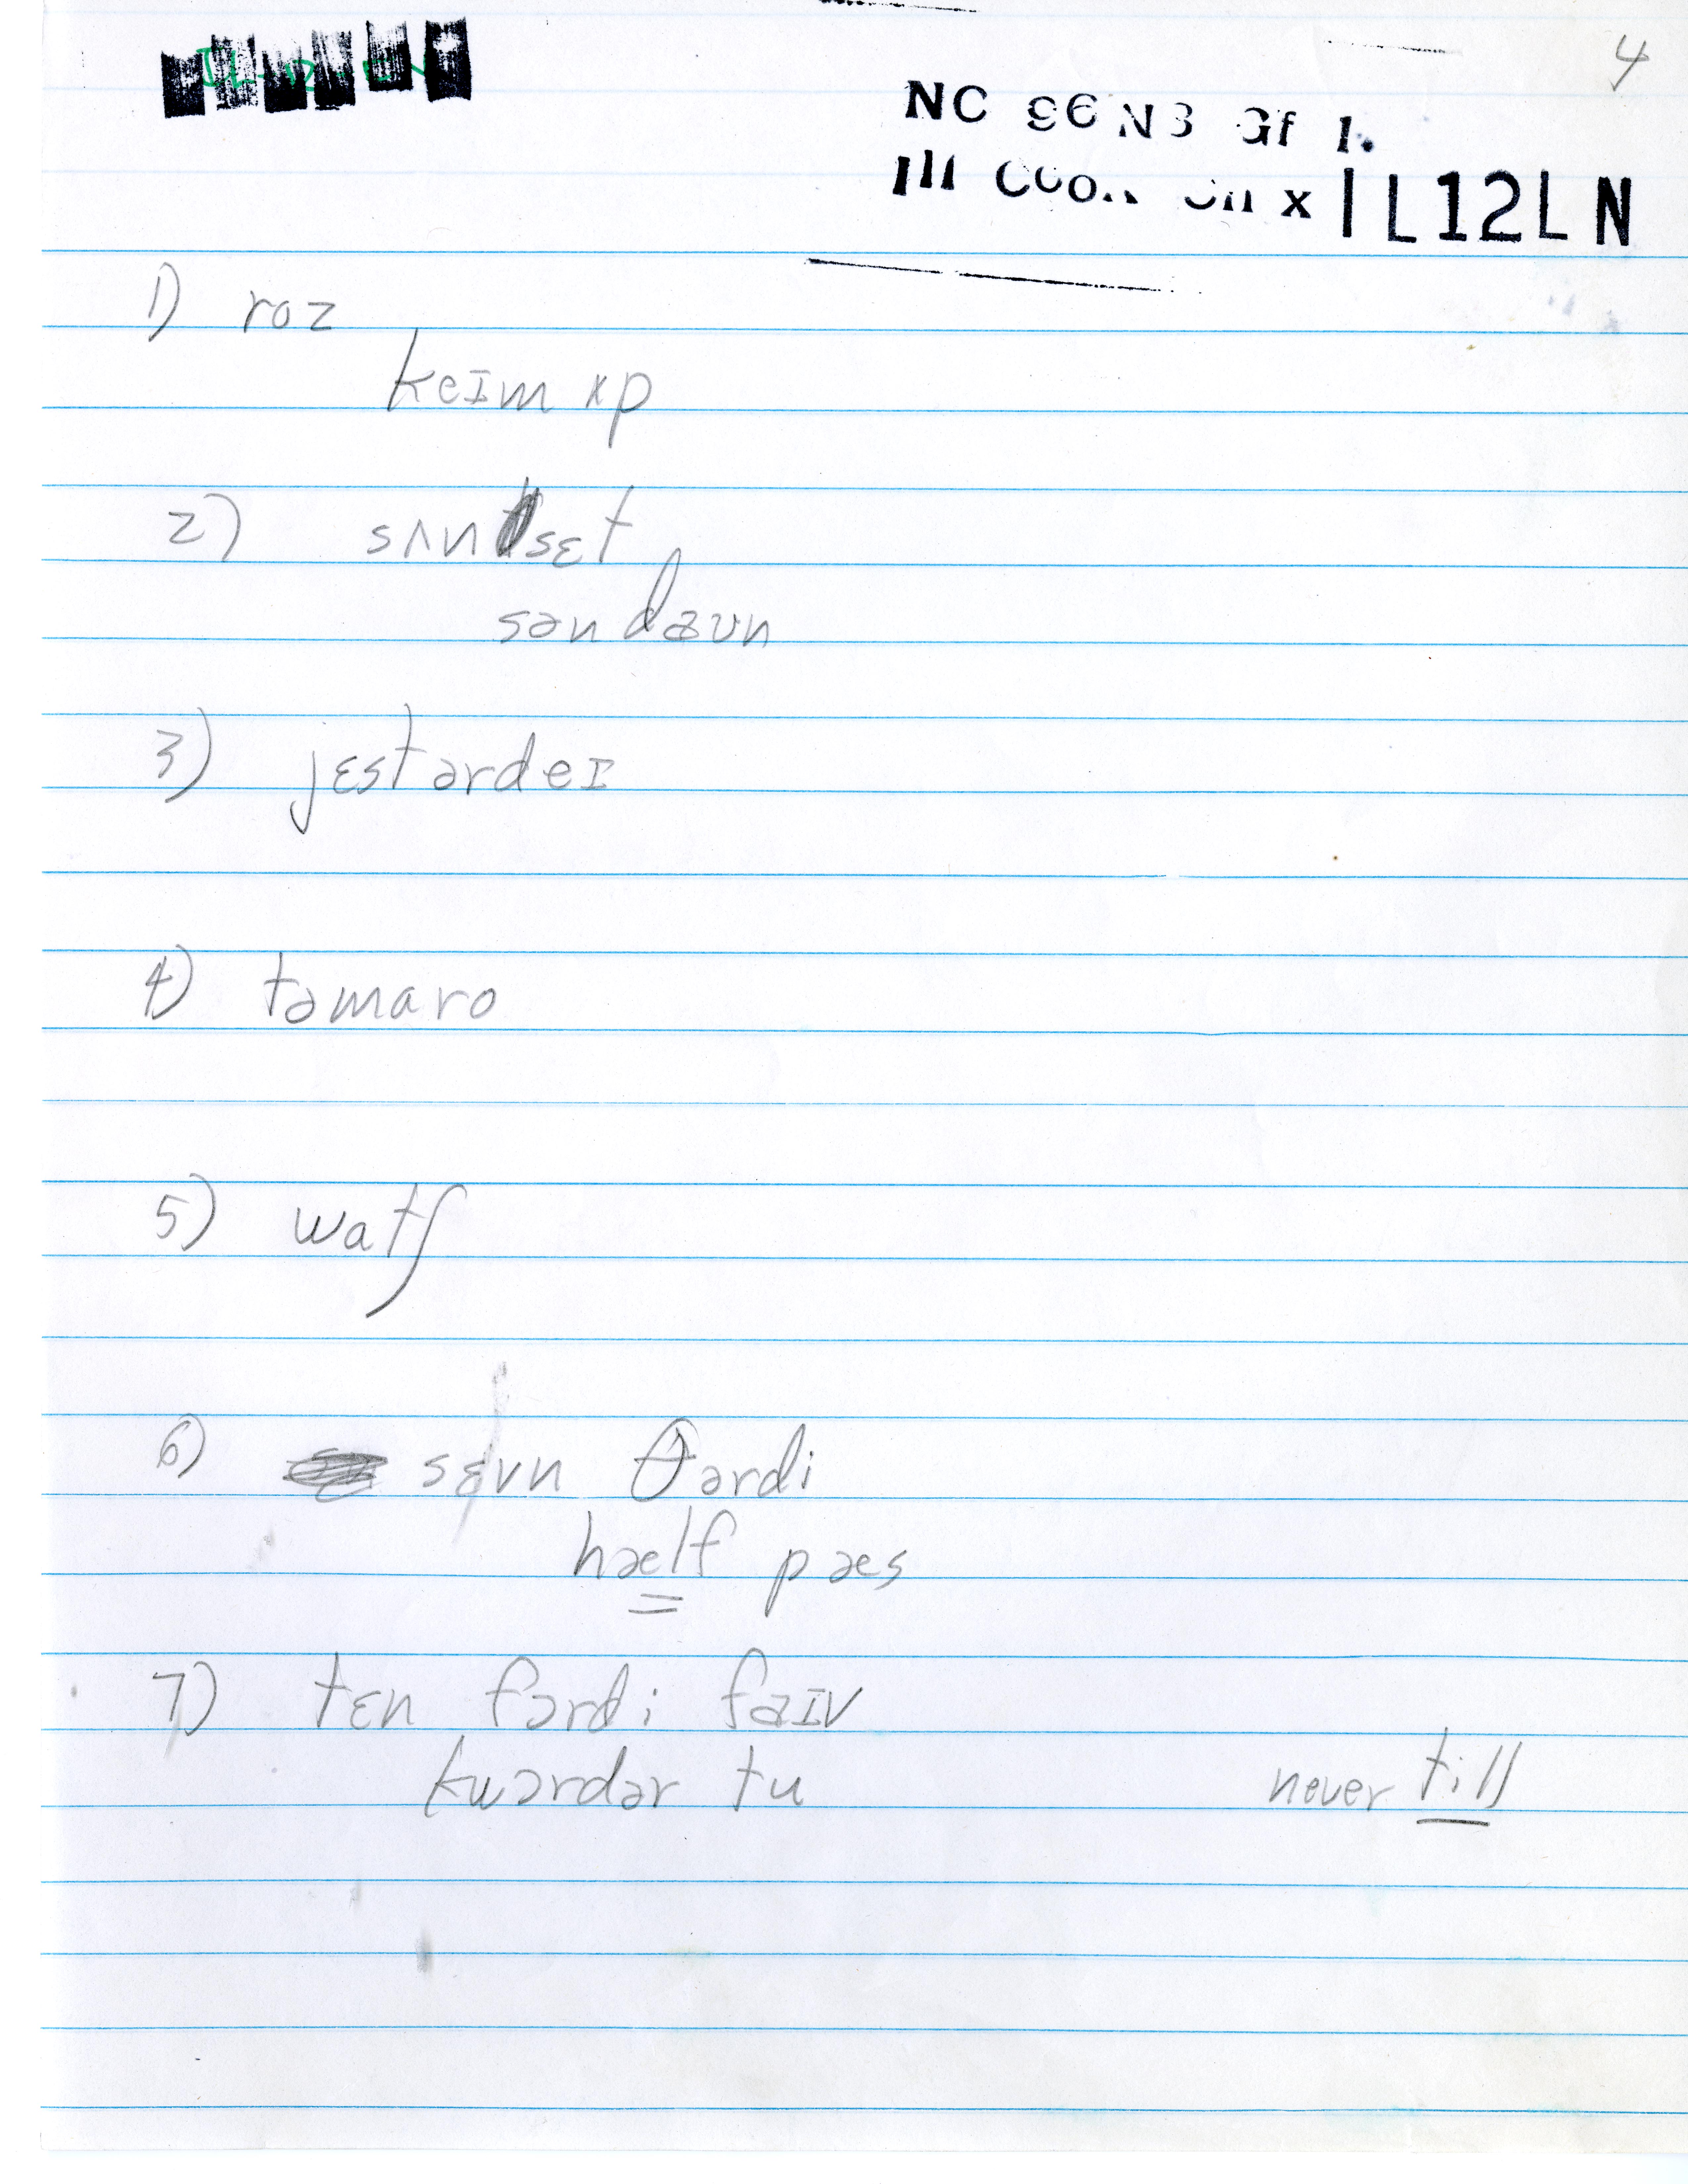 4
NC 96 N3 Gf 1.
Ill x | L12LN
1) roz
keɪm ʌp
2) sʌnset
səndaʊn
3) jɛstərdeɪ
4) təmaro
5) watʃ
6) sɛvn θərdi
hælf pæs
7) tɛn fɔrdi faɪv
kwɔrdər tu never till